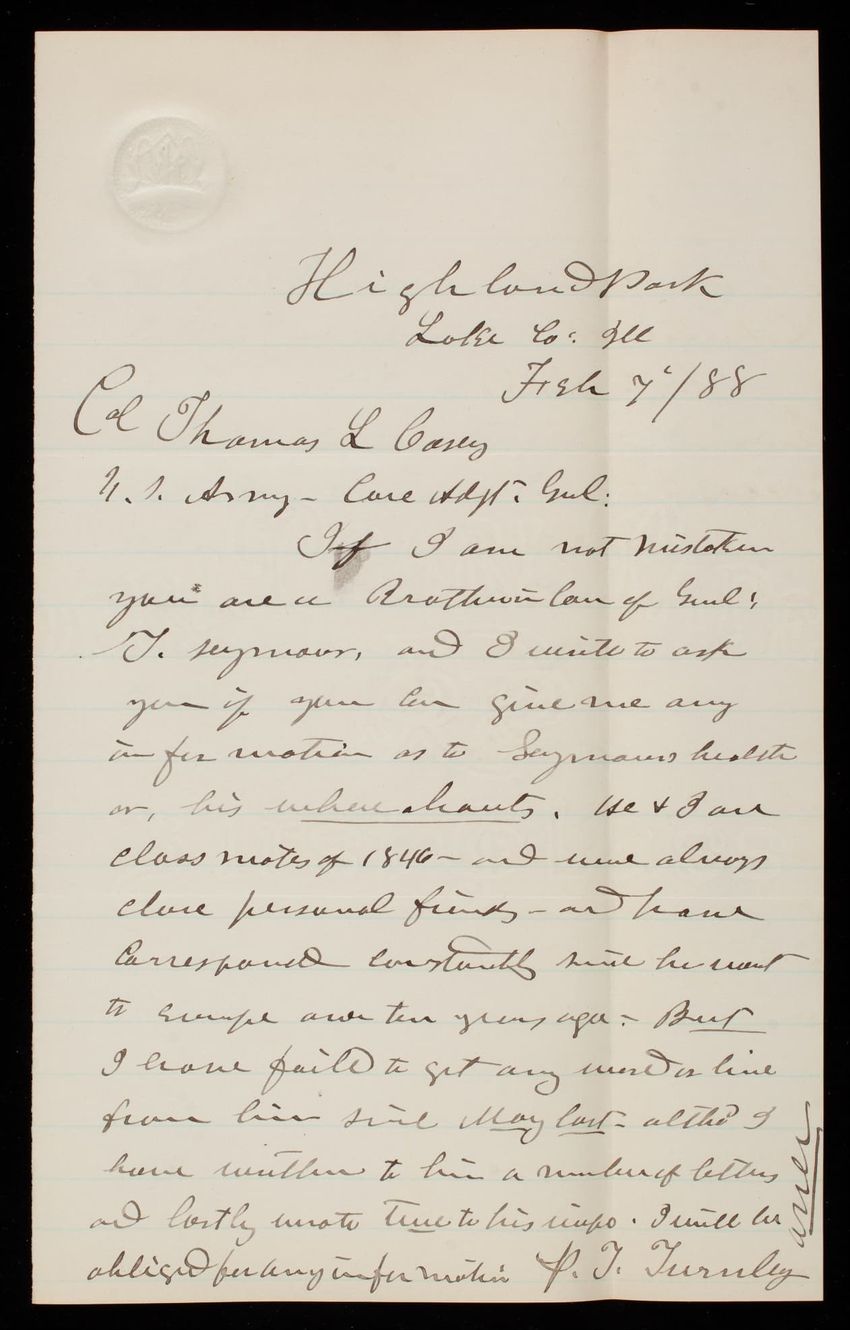 Highland Park
Lake Co: Ill
Feb 7"/88
Col Thomas L Casey
U.S. Army - Care Adjt. Genl:
If I am not mistaken
you are a Brother in law of Genl:
T. Seymour, and I write to ask
you if you can give me any
information as to Seymours health
or, his whereabouts. He & I are
class mates of 1846 - and were always
close personal friends - and have
corresponded constantly since he went
to Europe over ten years ago - But
I have failed to get any word or line
from him since May last - altho I
have written to him a number of letters
and lastly wrote to his wife. I will be
obliged for any information P. T. Turnley
over